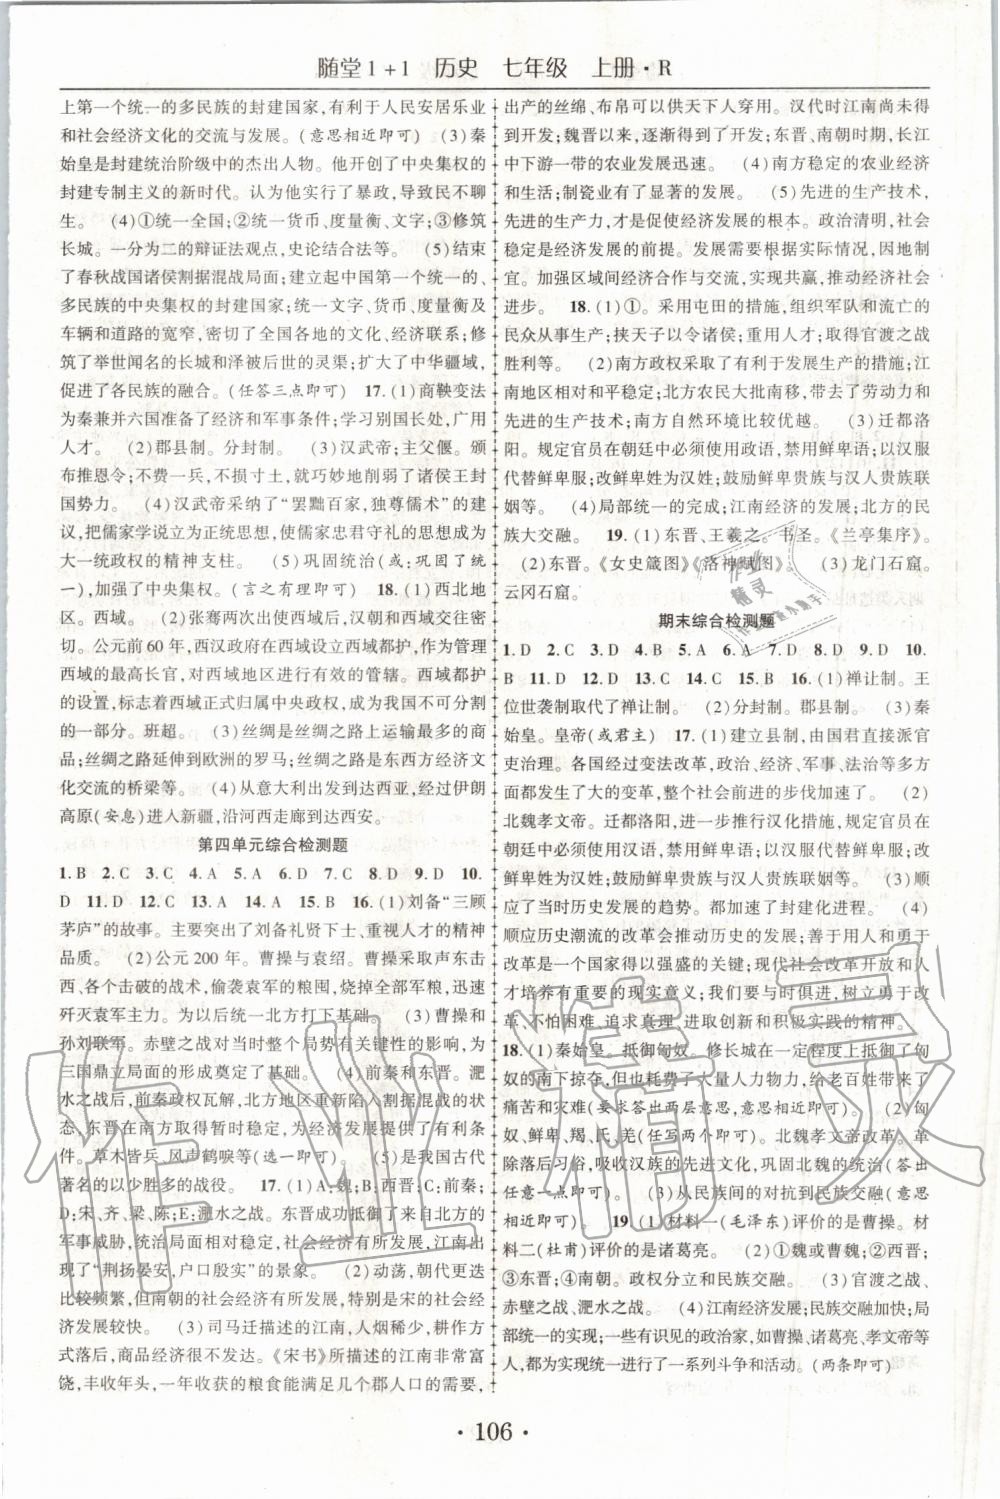 随堂1+1 历史 七年级 上册·R
上第一个统一的多民族的封建国家,有利于人民安居乐业
和社会经济文化的交流与发展。(意思相近即可) (3)秦
始皇是封建统治阶级中的杰出人物。他开创了中央集权的
封建专制主义的新时代。认为他实行了暴政,导致民不聊
生。 (4)①统一全国;②统一货币、度量衡、文字;③修筑
长城。一分为二的辩证法观点,史论结合法等。 (5)结束
了春秋战国诸侯割据混战局面;建立起中国第一个统一的、
多民族的中央集权的封建国家;统一文字、货币、度量衡及
车辆和道路的宽窄,密切了全国各地的文化、经济联系;修
筑了举世闻名的长城和泽被后世的灵渠;扩大了中华疆域,
促进了各民族的融合。(任答三点即可) 17.(1)商鞅变法
为秦兼并六国准备了经济和军事条件;学习别国长处,广用
人才。 (2)郡县制。分封制。 (3)汉武帝;主父偃。颁
布推恩令;不费一兵,不损寸土,就巧妙地削弱了诸侯王封
国势力。 (4)汉武帝采纳了“罢黜百家,独尊儒术”的建
议,把儒家学说立为正统思想,使儒家忠君守礼的思想成为
大一统政权的精神支柱。 (5)巩固统治(或巩固了统
一),加强了中央集权。(言之有理即可) 18.(1)西北地
区。西域。 (2)张骞两次出使西域后,汉朝和西域交往密
切。公元前60年,西汉政府在西域设西域都护,作为管理
西域的最高长官,对西域进行有效的管辖。西域都护
的设置,标志着西域正式归属中央政权,成为我国不可分割
的一部分。班超。 (3)丝绸是丝绸之路上运输最多的商
品;丝绸之路延伸到欧洲的罗马;丝绸之路是东西方经济文
化交流的桥梁等。 (4)从意大利出发到达西亚,经过伊朗
高原(安息)进入新疆,沿河西走廊到达西安。
第四单元综合检测题
1.B 2.C 3.C 4.A 5.A 6.D 7.D 8.D 9.D 10.
D 11.D 12.C 13.A 14.A 15.B 16.(1)刘备“三顾
茅庐”的故事。突出了刘备礼贤下士、重视人才的精神
品质。 (2)公元200年。曹操与袁绍。曹操采取声东击
西、各个击破的战术,偷袭袁军的粮囤,烧掉全部军粮,迅速
歼灭袁军主力。为以后统一北方打下基础。 (3)曹操和
孙刘联军。赤壁之战对当时整个局势有关键性的影响,为
三国鼎立局面的形成奠定了基础。 (4)前秦和东晋。淝
水之战后,前秦政权瓦解,北方地区重新陷入割据混战的状
态,东晋在南方取得暂时稳定,为经济发展提供了有利条
件。草木皆兵、风声鹤唳等(选一即可)。 (5)是我国古代
著名的以少胜多的战役。 17.(1)A;魏;B;西晋;C;前秦;
D;宋、齐、梁、陈;E;淝水之战。东晋成功抵御了来自北方的
军事威胁,南方局面相对稳定,社会经济发展,江南出现
了“荆扬晏安,户口殷实”的景象。 (2)动荡,朝代更迭
比较频繁,但南朝的社会经济有所发展,特别是宋的社会经
济发展较快。 (3)司马迁描述的江南,人烟稀少,耕作方
式落后,商品经济很不发达。《宋书》所描述的江南非常富
饶,丰收年头,一年收获的粮食能满足几个郡人口的需要,
出产的丝绵、布帛可以供天下人穿用。汉代时江南尚未得
到开发;魏晋以来,逐渐得到了开发;东晋、南朝时期,长江
中下游一带的农业发展迅速。 (4)南方稳定的农业经济
和生活;制瓷业有了显著的发展。 (5)先进的生产技术,
先进的生产力,才是促使经济发展的根本。政治清明,社会
稳定是经济发展的前提。发展需要根据实际情况,因地制
宜。加强区域间经济合作与交流,实现共赢,推动经济社会
进步。 18.(1)①。采用屯田的措施,组织军队和流亡的
民众从事生产;挟天子以令诸侯;重用人才;取得官渡之战
胜利等。 (2)南方政权采取了有利于发展生产的措施;江
南地区相对和平稳定;北方农民大批南移,带去了劳动力和
先进的生产技术;南方自然环境比较优越。 (3)迁都
洛阳。规定官员在朝廷中必须使用汉语,禁用鲜卑语;以汉服
代替鲜卑服,改鲜卑姓为汉姓;鼓励鲜卑贵族与汉人贵族联
姻等。 (4)局部统一的完成;江南经济的发展;北方的民
族大交融。 19.(1)东晋、王羲之。书圣。《兰亭集序》。
(2)东晋。《女史箴图》《洛神赋图》。 (3)龙门石窟。
云冈石窟。
期末综合检测题
1.D 2.C 3.B 4.C 5.A 6.A 7.D 8.D 9.D 10.
B 11.D 12.B 13.B 14.D 15.A 16.(1)禅让制。王
位世袭制取代了禅让制。 (2)分封制。郡县制。 (3)秦
始皇。皇帝(或君主) 17.(1)建立县制,由国君直接派官
吏治理。各国经过变法改革,政治、经济、军事、法治等多方
面都发生了大的变革,推动社会进步的步伐加快。 (2)
北魏孝文帝。迁都洛阳,便于推行汉化措施,规定官员在
朝廷中必须使用汉语,禁用鲜卑语;以汉服代替鲜卑服;
改鲜卑姓为汉姓;鼓励鲜卑贵族与汉人贵族联姻等。 (3)
顺应了当时历史发展的趋势。都加速了封建化进程。 (4)
顺应历史潮流的改革会推动历史的发展;善于用人和勇于
改革是一个国家得以强盛的关键;现代社会改革开放和人
才培养有重要的现实意义;我们要与时俱进,树立勇于改
革、不怕困难、追求真理、进取创新和积极实践的精神。
18.(1)秦始皇。抵御匈奴。修长城在一定程度上抵御了匈
奴的南下掠夺,但也耗费了大量人力物力,给老百姓带来了
痛苦和灾难(要求答出两层意思,意思相近即可)。 (2)匈
奴、鲜卑、羯、氐、羌(任写两个即可)。北魏孝文帝改革。革
除落后旧俗,吸收汉族的先进文化,巩固北魏的统治(答出
任意一点即可)。 (3)从民族间的对抗到民族交融(意思
相近即可)。 19.(1)材料一(毛泽东)评价的是曹操。材
料二(杜甫)评价的是诸葛亮。 (2)①魏或曹魏;②西晋;
③东晋;④南朝。政权分立和民族交融。 (3)官渡之战、
赤壁之战、淝水之战。 (4)江南经济开发;民族交融;局
部统一的实现;一些有识见的政治家,如曹操、诸葛亮、孝文帝等
人,都为实现统一进行了一系列斗争和活动。(两条即可)
·106·
作业精灵